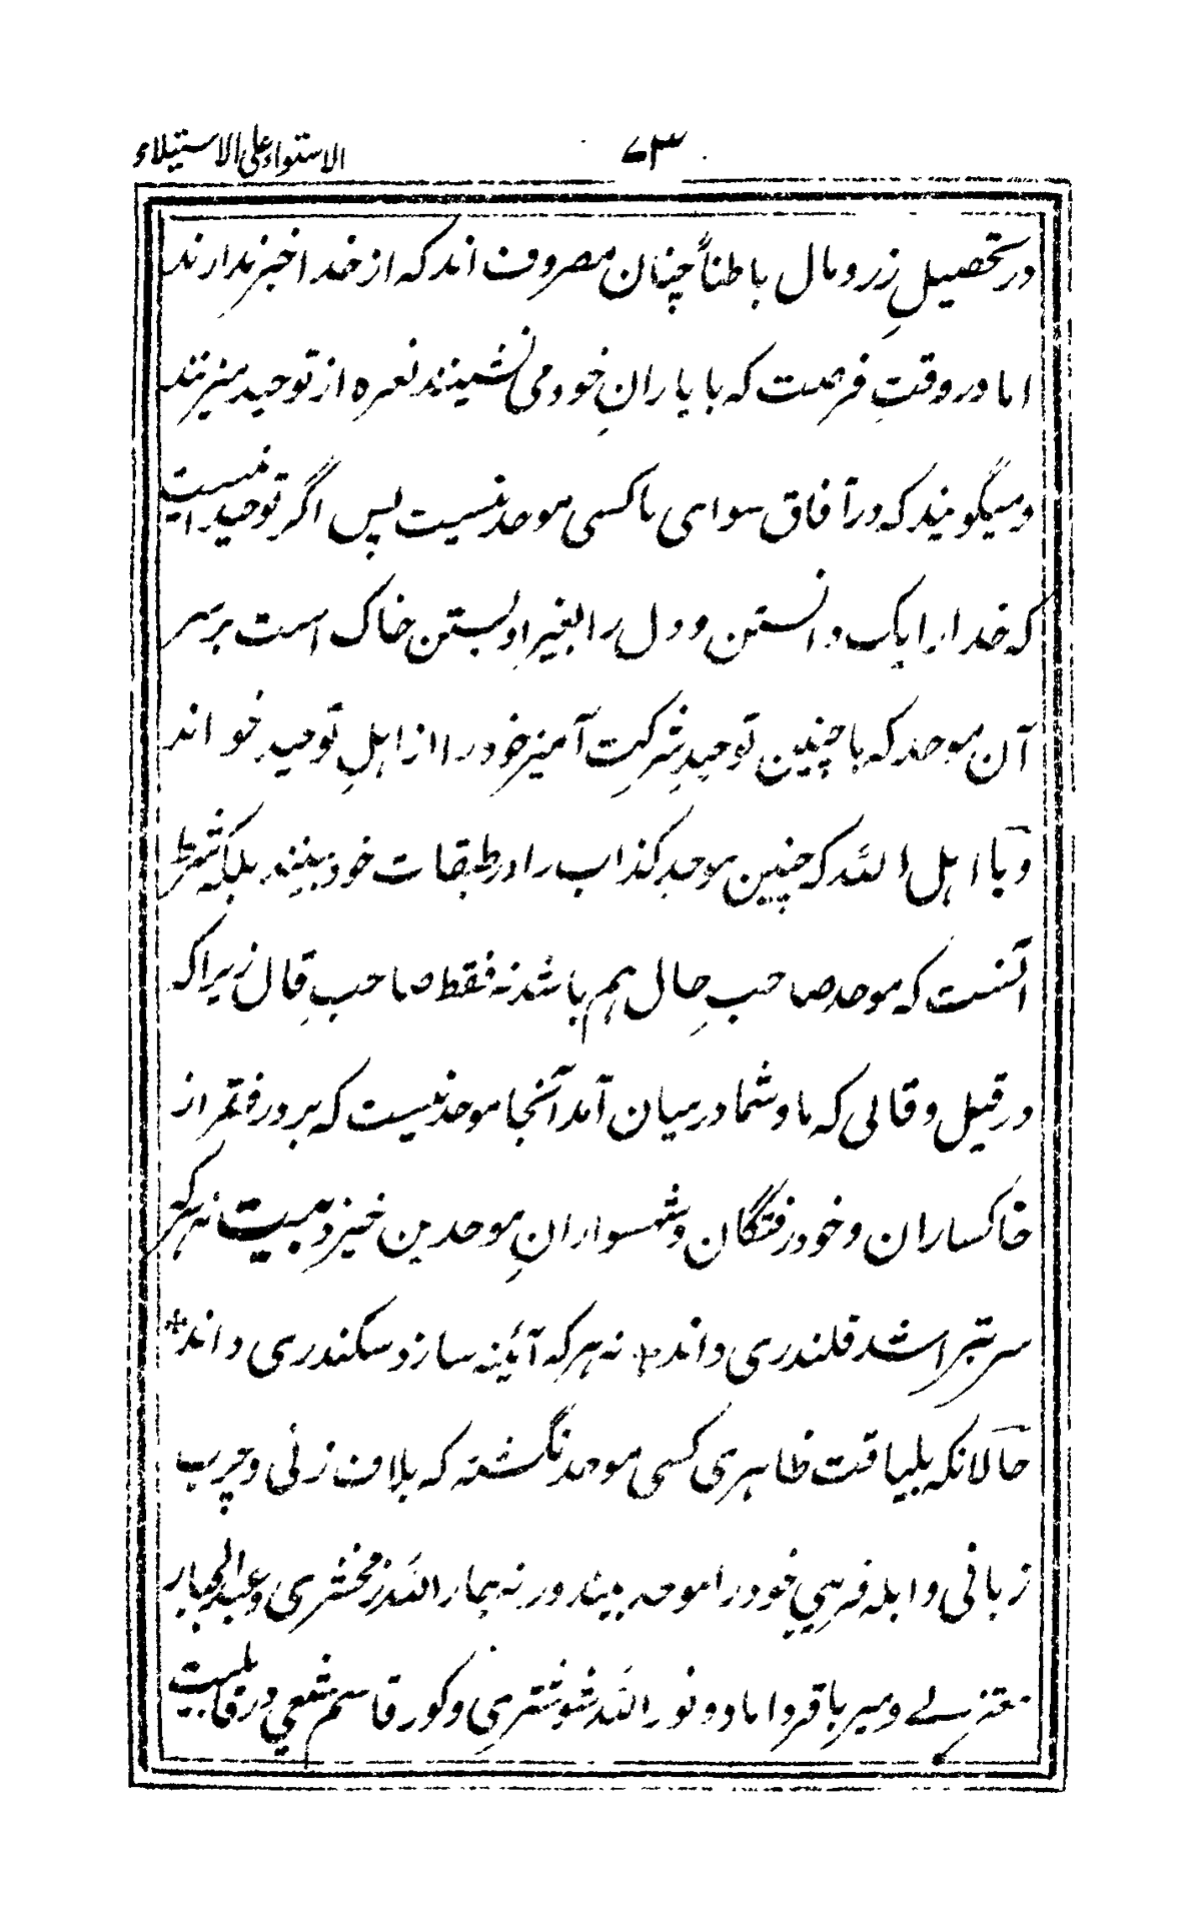 ۷۳ الاستواء علی الاستیلاء
در تحصیلِ زر و مال باطناً چنان مصروف اند که از خدا خبر ندارند
اما در وقتِ فرصت که با یارانِ خود می نشینند نعره از توحید میزنند
و میگویند که در آفاق سوای ما کسی موحد نیست پس اگر توحید اینست
که خدا را یک دانستن و دل را بغیرِ او بستن خاک است بر سر
آن موحد که با چنین توحیدِ شرکت آمیز خود را از اهلِ توحید خواند
و یا اهل الله که چنین موحدِ کذاب را در طبقات خود بینند بلکه شرط
آنست که موحد صاحبِ حال هم باشد نه فقط صاحبِ قال زیرا که
در قیل و قالی که ما و شما درمیان آمد آنجا موحد نیست که بر ورفتم از
خاکساران و خود رفتگان و شهسوارانِ موحدین خیزد بیت نه هر که
سر بتراشد قلندری داند + نه هر که آئینه سازد سکندری داند *
حالانکه بلیاقت ظاهری کسی موحد نگشته که بلاف زنی و چرب
زبانی و ابله فریبیِ خود را موحد بیند ورنه بجار الله زمخشری و عبد الجبار
معتزلے و میر باقر داماد و نور الله شوشتری و کور قاسم شیعی در قابلیت